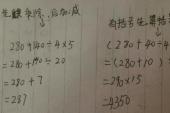 先乘除，后加减
280+140÷4×5
=280+140÷20
=280+7
=287
有括号先算括
(280+40÷4
=(280+10)
=290×15
=4350